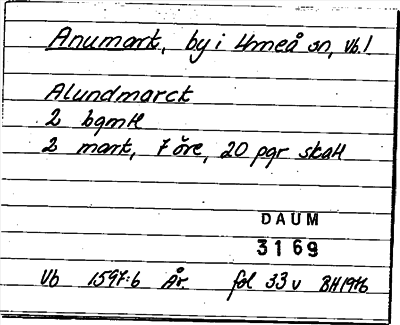 Anumark, by i Umeå sn, Vb.
Alundmarck
2 bgmtl
2 mark, 7 öre, 20 pgr skatt
DAUM
3169
Vb 1597:6 År. fol 33 v BH 1976